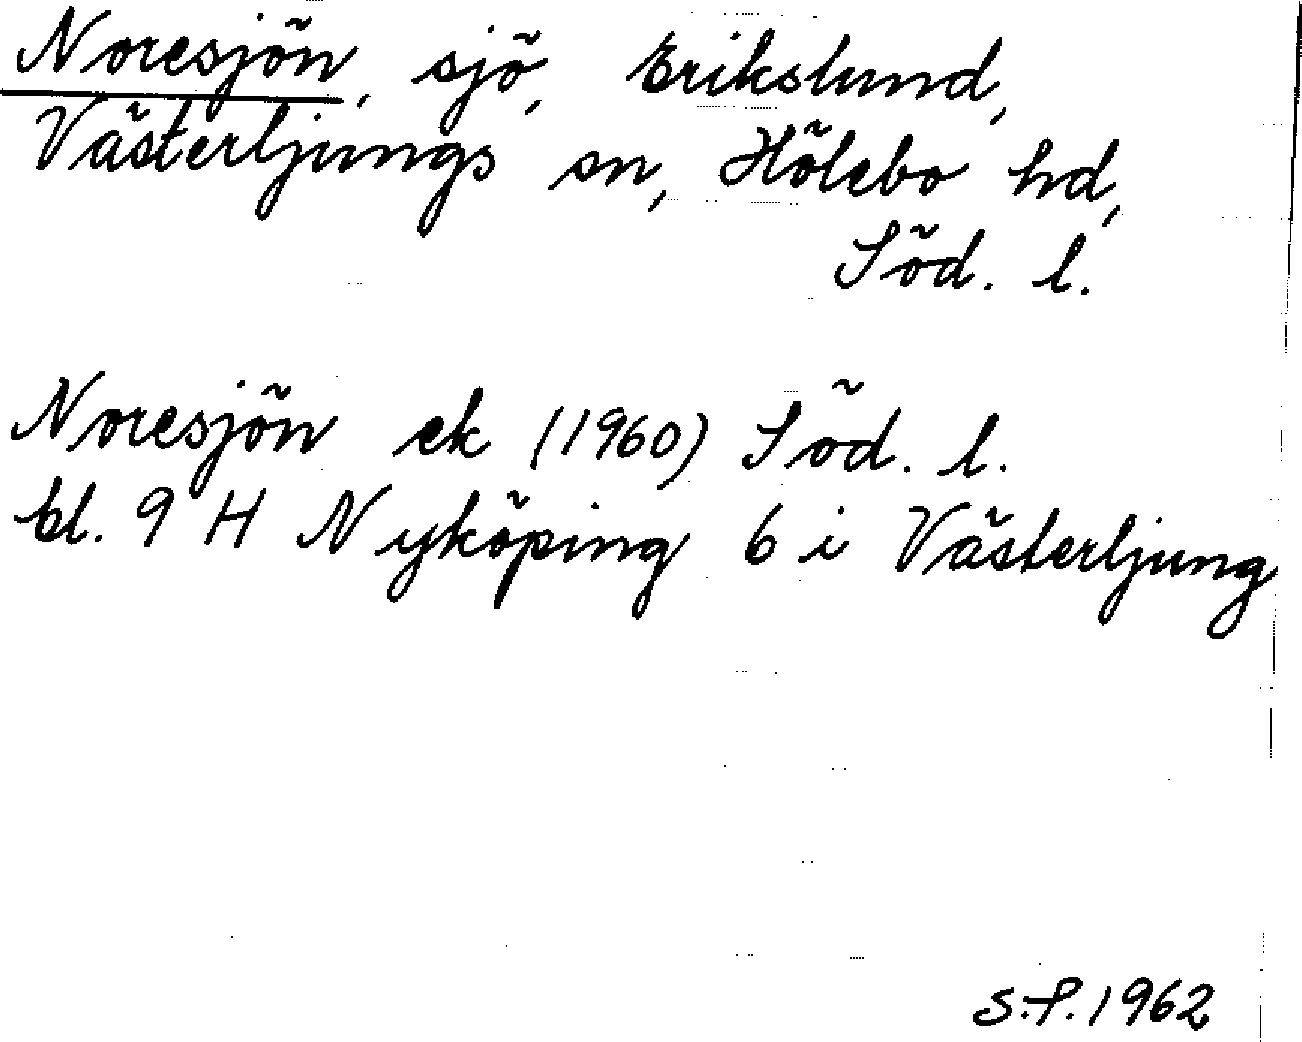 Noresjön, sjö, Erikslund,
Västerljungs sn, Hölebo hd,
Söd. l.
Noresjön ek (1960) Söd. l.
bl. 9 H Nyköping 6 i Västerljung
S.P. 1962